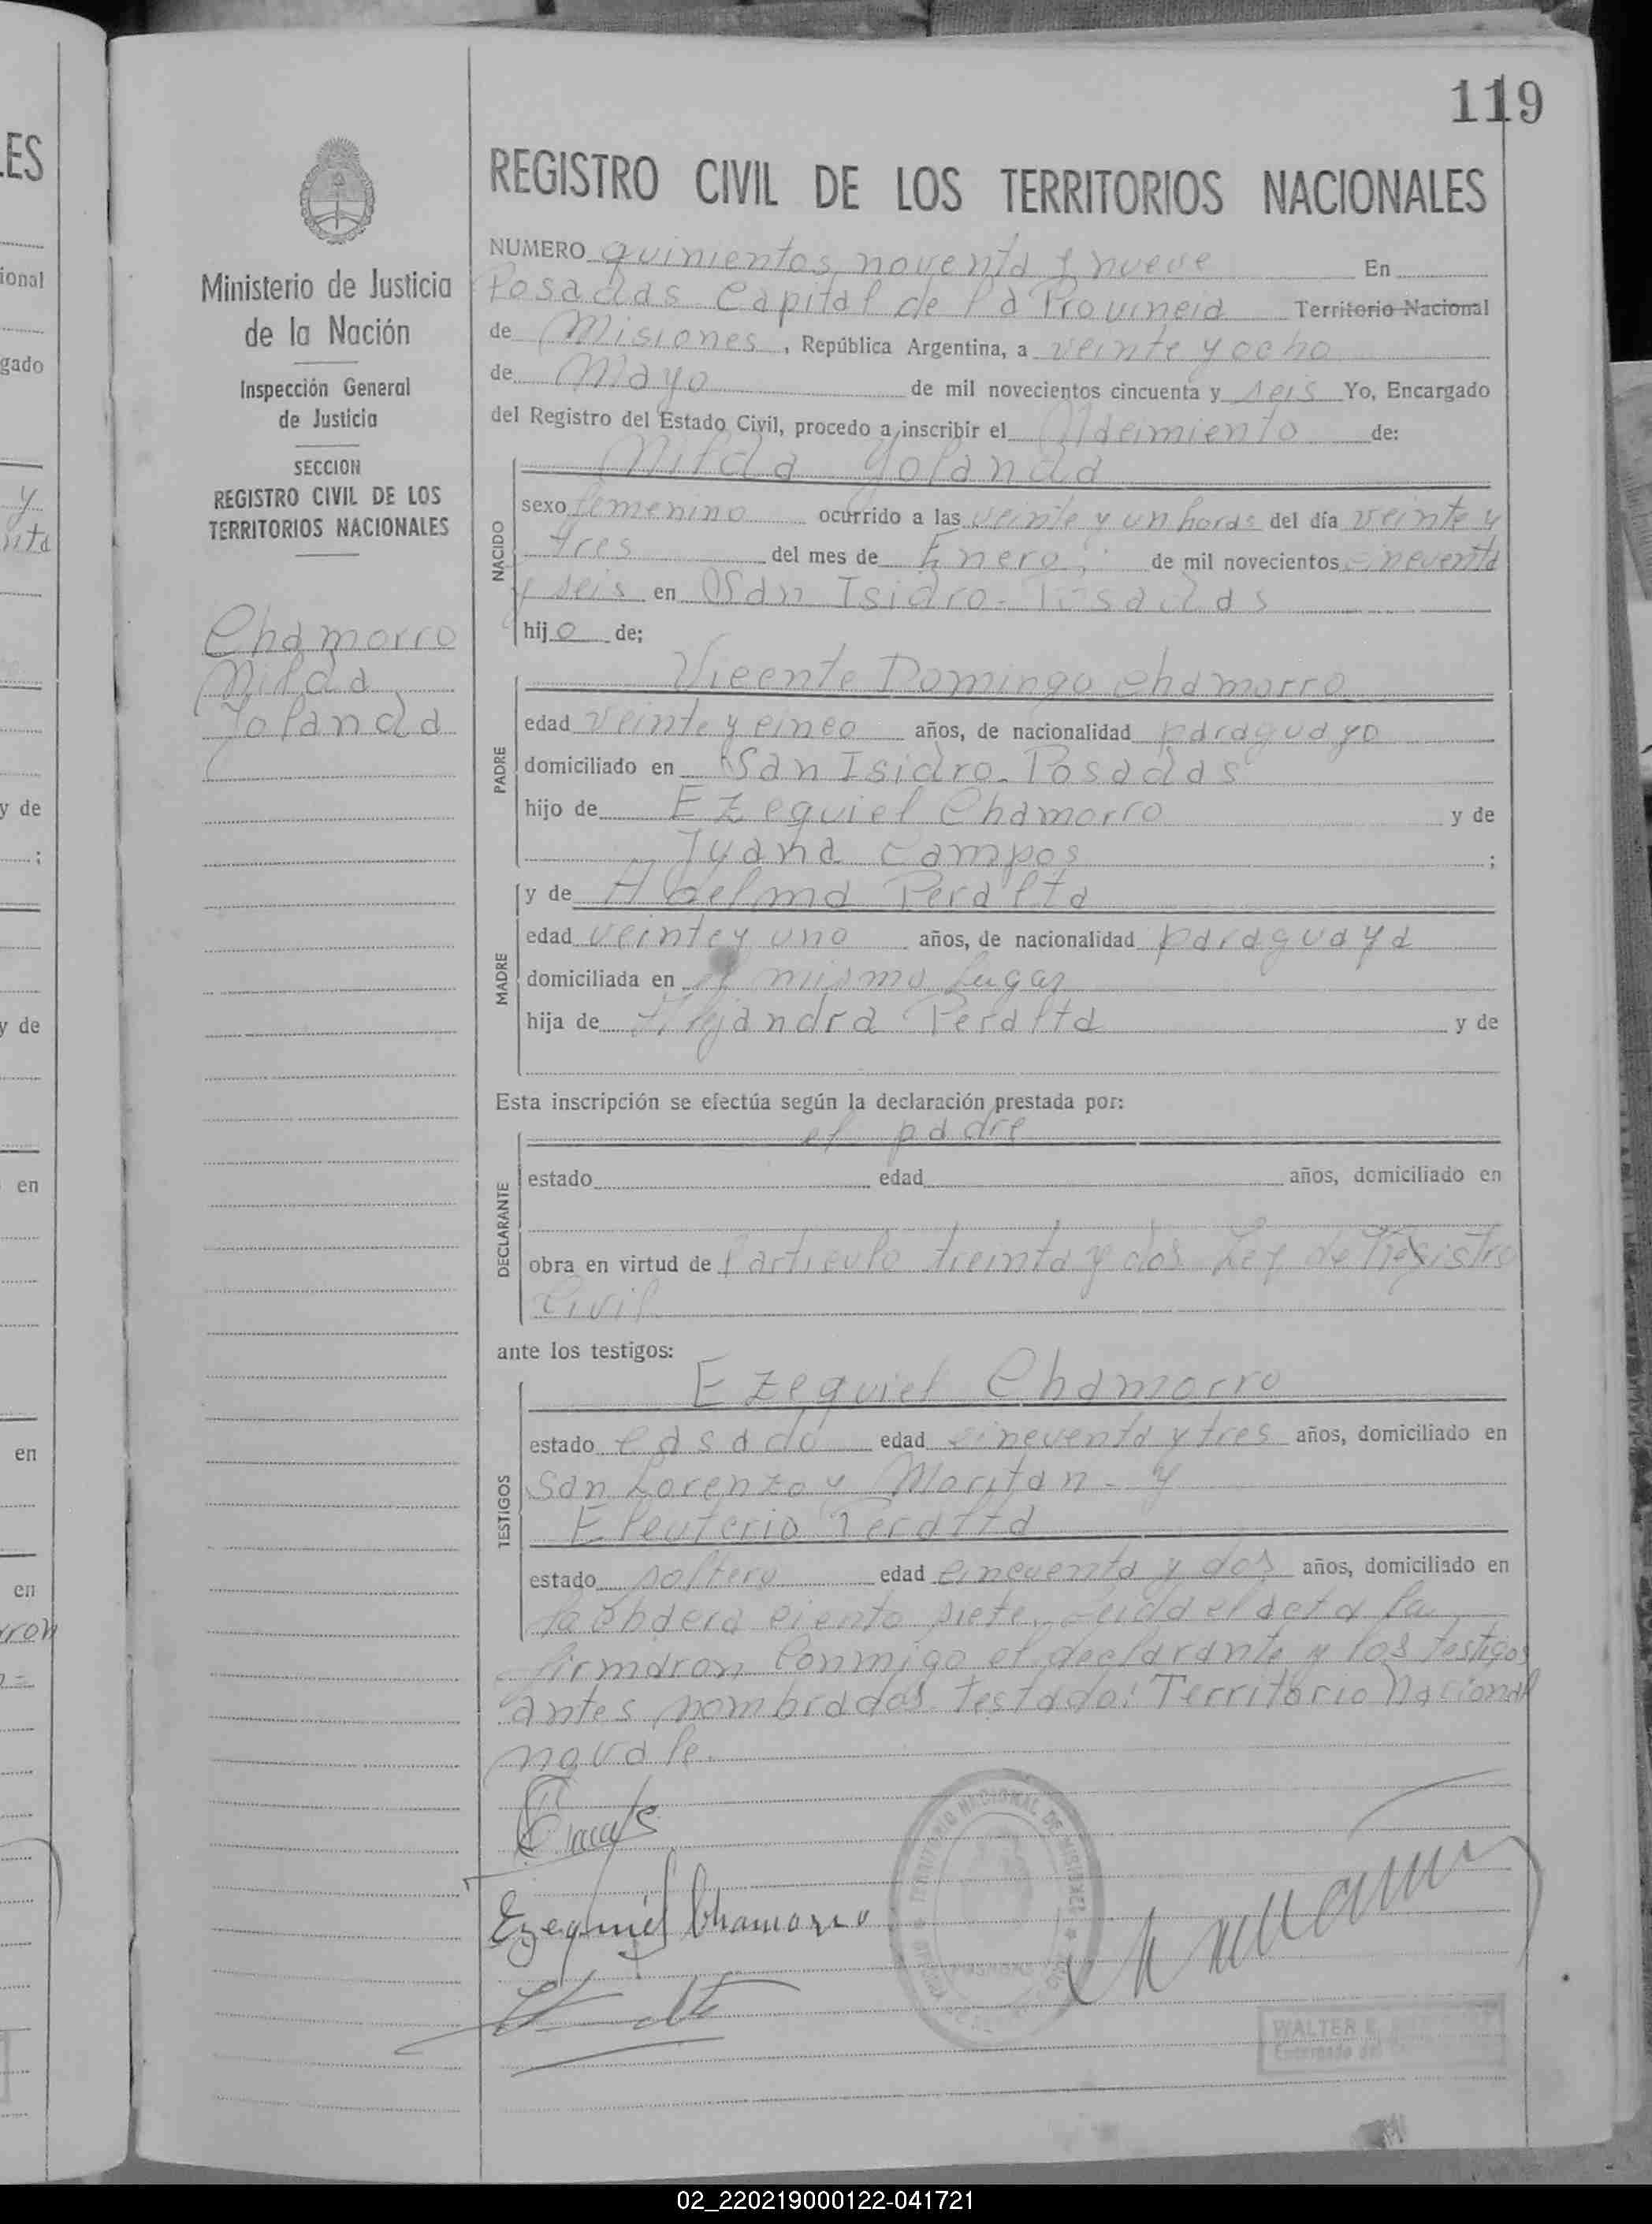 119
REGISTRO CIVIL DE LOS TERRITORIOS NACIONALES
Ministerio de Justicia
de la Nación
Inspección General
de Justicia
SECCION
REGISTRO CIVIL DE LOS
TERRITORIOS NACIONALES
Chamorro
Nilda
Yolanda
NUMERO quinientos noventa y nueve En
Posadas Capital de la Provincia Territorio Nacional
de Misiones, República Argentina, a veinte y ocho
de Mayo de mil novecientos cincuenta y seis Yo, Encargado
del Registro del Estado Civil, procedo a inscribir el Nacimiento de:
Nilda Yolanda
NACIDO
sexo femenino ocurrido a las veinte y un horas del día veinte y
tres del mes de Enero, de mil novecientos cincuenta
y seis en San Isidro - Posadas
hijo de;
Vicente Domingo Chamorro
PADRE
edad veinte y cinco años, de nacionalidad paraguayo
domiciliado en San Isidro - Posadas
hijo de Ezequiel Chamorro y de
Juana Campos ;
MADRE
y de Peralta
edad veinte y uno años, de nacionalidad paraguaya
domiciliada en el mismo lugar
hija de Alejandra Peralta y de
Esta inscripción se efectúa según la declaración prestada por:
el padre
DECLARANTE
estado edad años, domiciliado en
obra en virtud de l articulo treinta y dos Ley de Registro
Civil
ante los testigos:
Ezequiel Chamorro
TESTIGOS
estado casado edad cincuenta y tres años, domiciliado en
San Lorenzo y Moritan - y
Eleuterio Peralta
estado soltero edad cincuenta y dos años, domiciliado en
la ciento siete. Leida el acta la
firmaron conmigo el declarante y los testigos
antes nombrados. Testado: Territorio Nacional
no vale.
Ezequiel Chamorro
TERRITORIO NACIONAL DE MISIONES
POSADAS
WALTER E.
Encargado del
ES
ional
gado
y
nta
y de
;
y de
en
en
en
rron
02_220219000122-041721